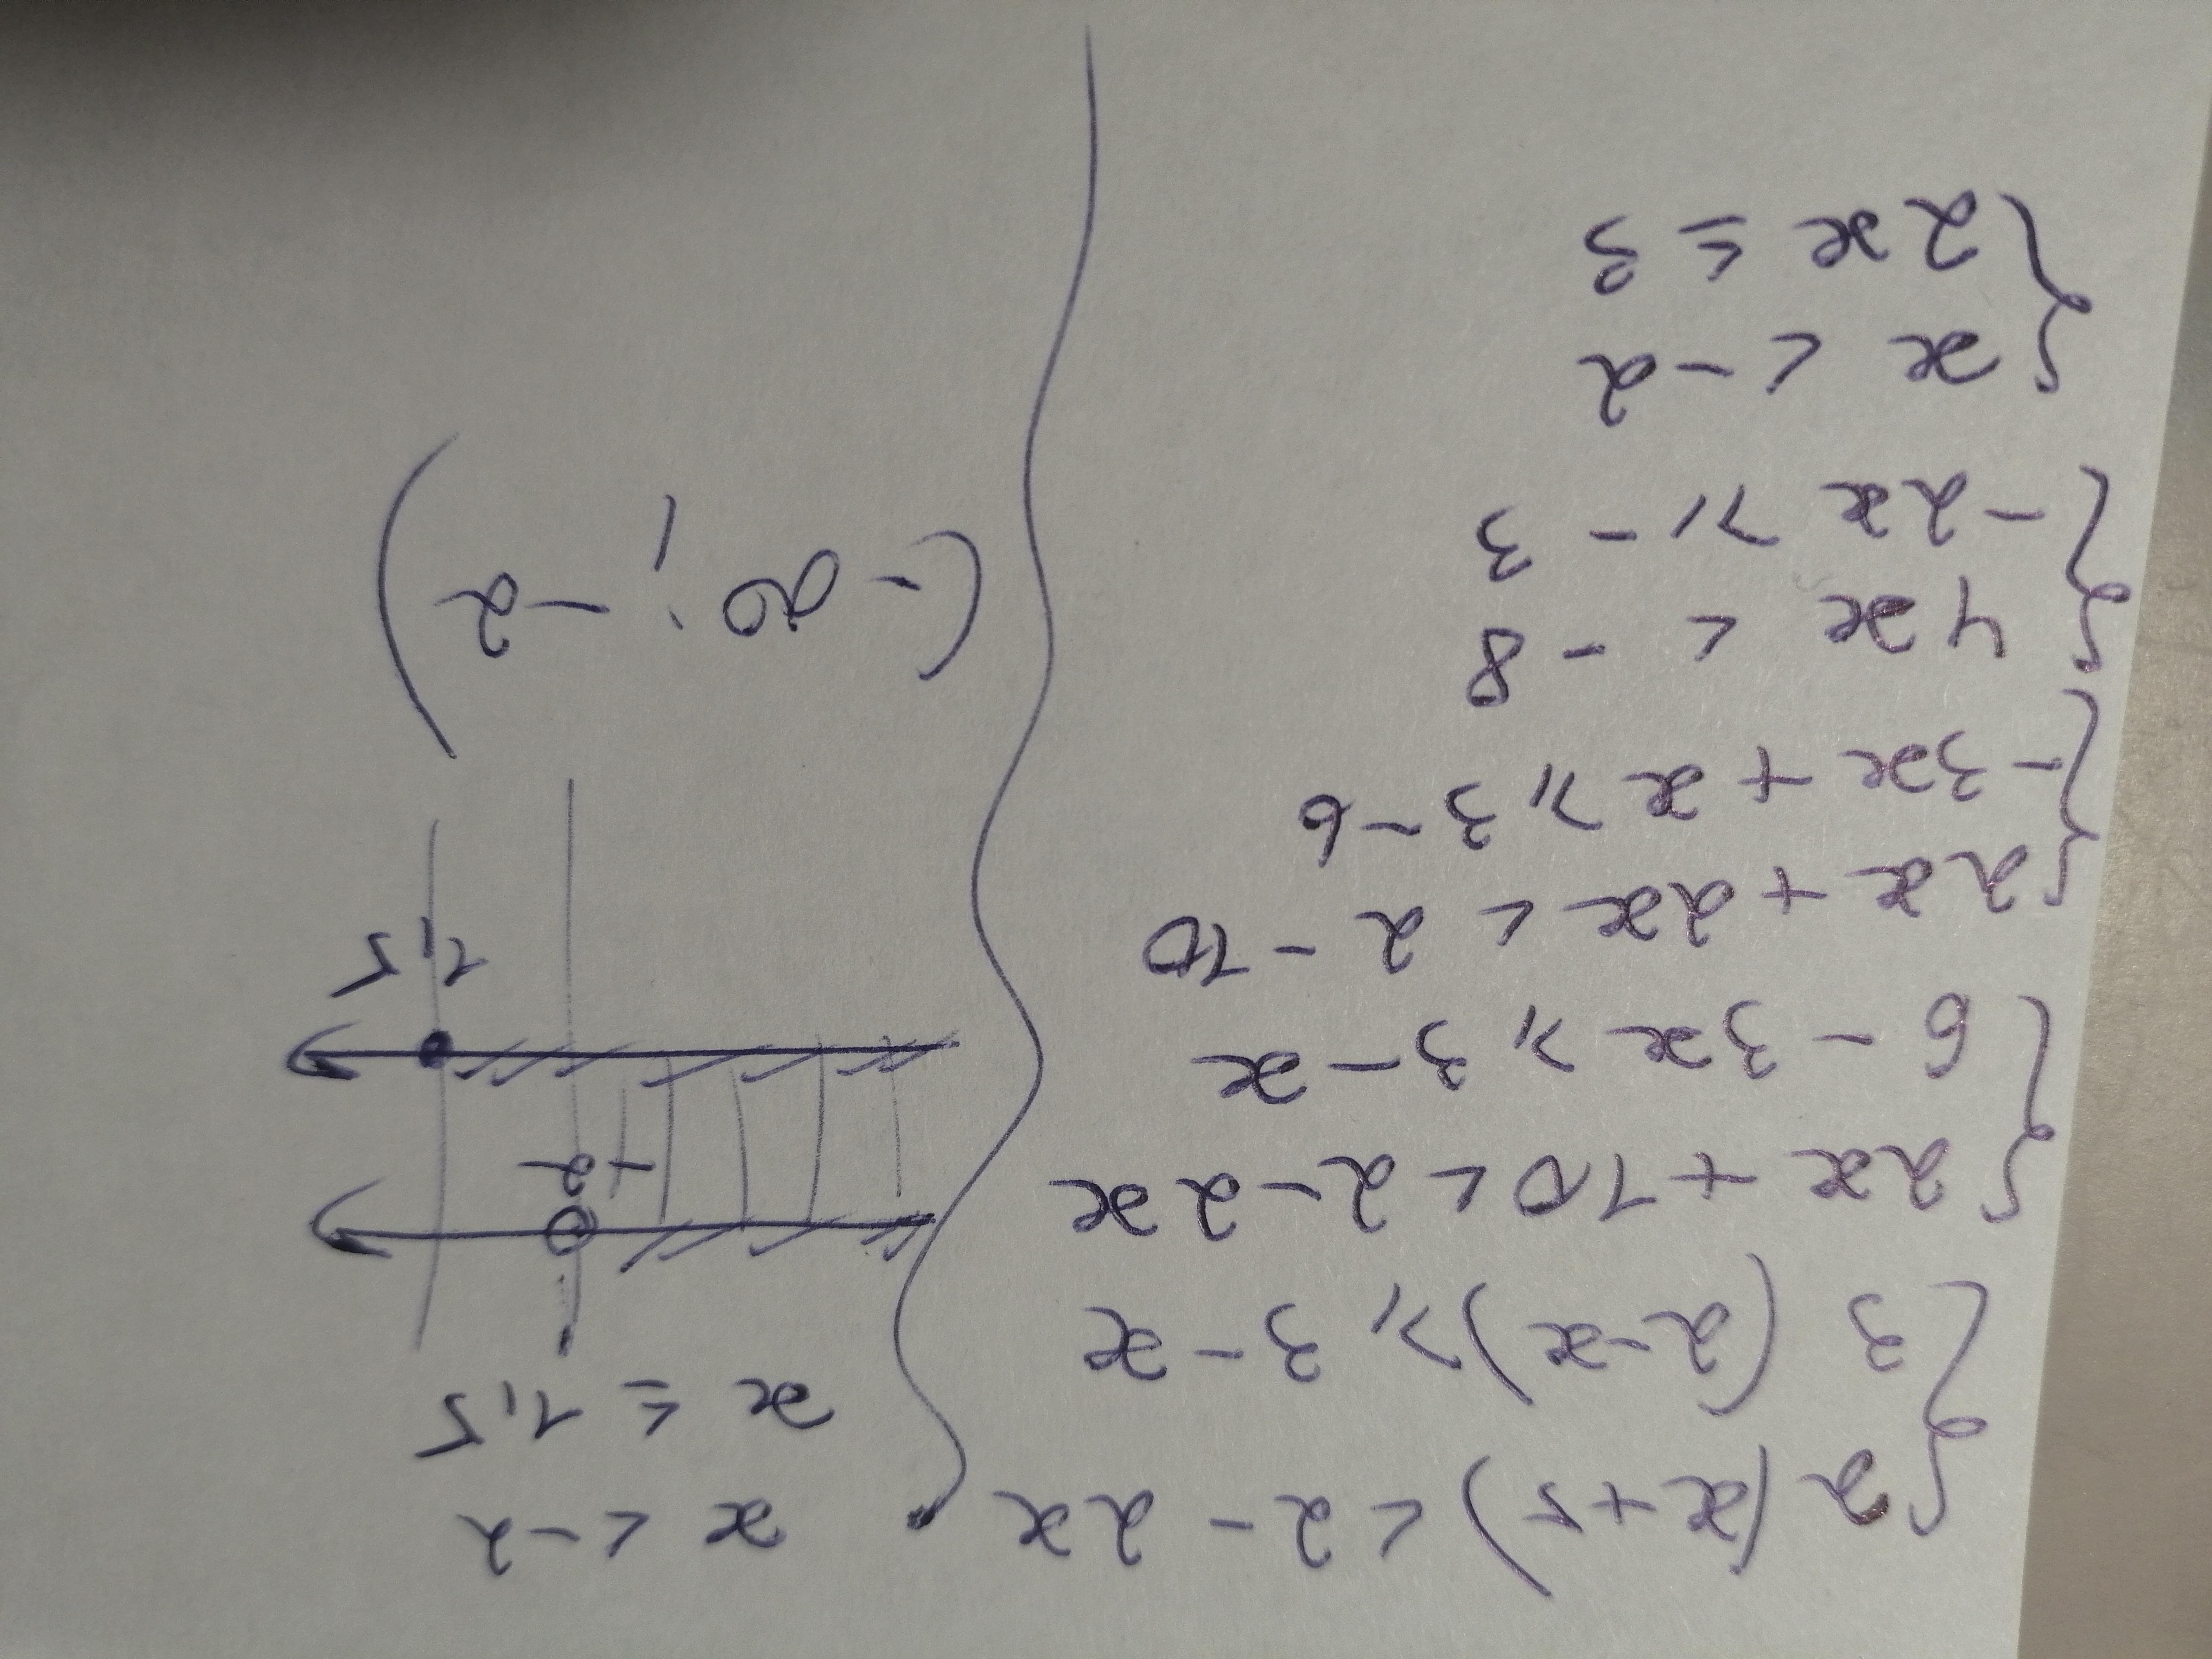 2(x+5) < 2 - 2x
3(2-x) ⩾ 3 - x
2x + 10 < 2 - 2x
6 - 3x ⩾ 3 - x
2x + 2x < 2 - 10
-3x + x ⩾ 3 - 6
4x < -8
-2x ⩾ -3
x < -2
2x ≤ 3
x < -2
x ≤ 1,5
-2
1,5
(-∞; -2)